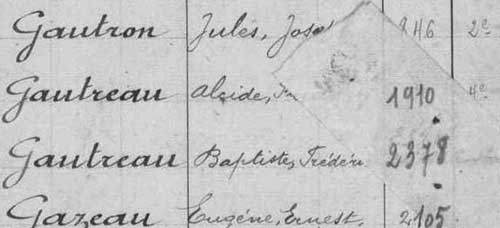 Gautron Jules, 846 2e
Gautreau Alcide, 1910 4e
Gautreau Baptiste, Frédéri 2378
Gazeau Eugène, Ernest, 2105